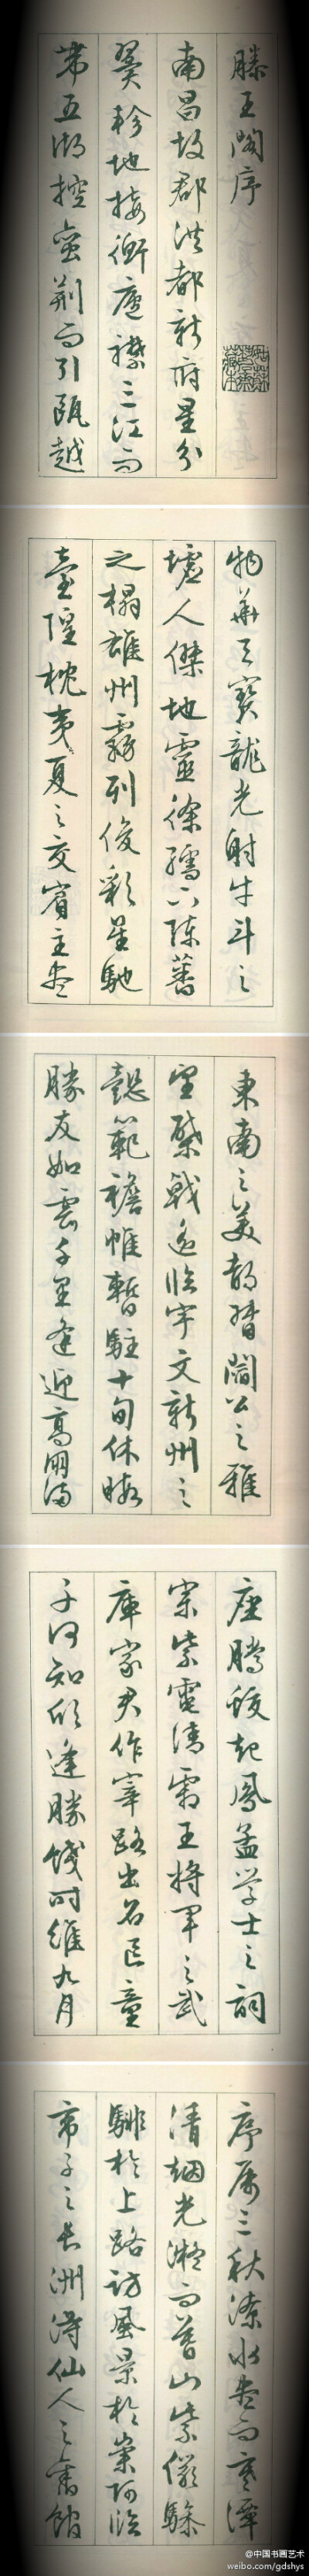 滕王閣序
南昌故郡洪都新府星分
翼軫地接衡廬襟三江而
帶五湖控蠻荊而引甌越
物華天寶龍光射牛斗之
墟人傑地靈徐孺下陳蕃
之榻雄州霧列俊彩星馳
臺隍枕夷夏之交賓主盡
東南之美都督閻公之雅
望棨戟遙臨宇文新州之
懿範襜帷暫駐十旬休暇
勝友如雲千里逢迎高朋滿
座騰蛟起鳳孟学士之詞
宗紫電清霜王將軍之武
庫家君作宰路出名區童
子何知欣逢勝餞時維九月
序屬三秋潦水盡而寒潭
清烟光凝而暮山紫儼驂
騑於上路訪風景於崇阿臨
帝子之長洲得仙人之舊館
@中国书画艺术
weibo.com/gdshys